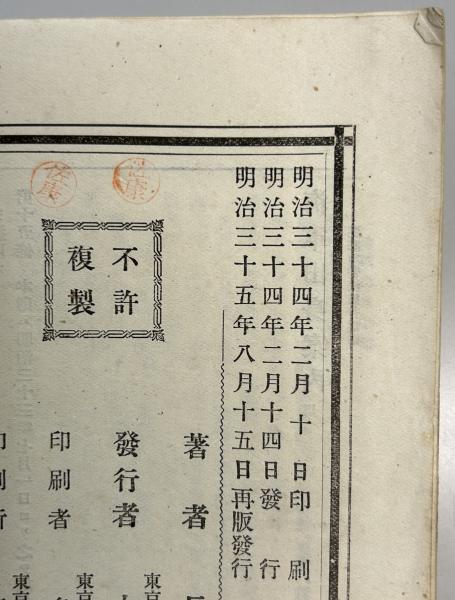 明治三十四年二月十日印刷
明治三十四年二月十四日發行
明治三十五年八月十五日再版發行
著者
發行者
東京
不許
複製
印刷者
東京
印刷所
東京